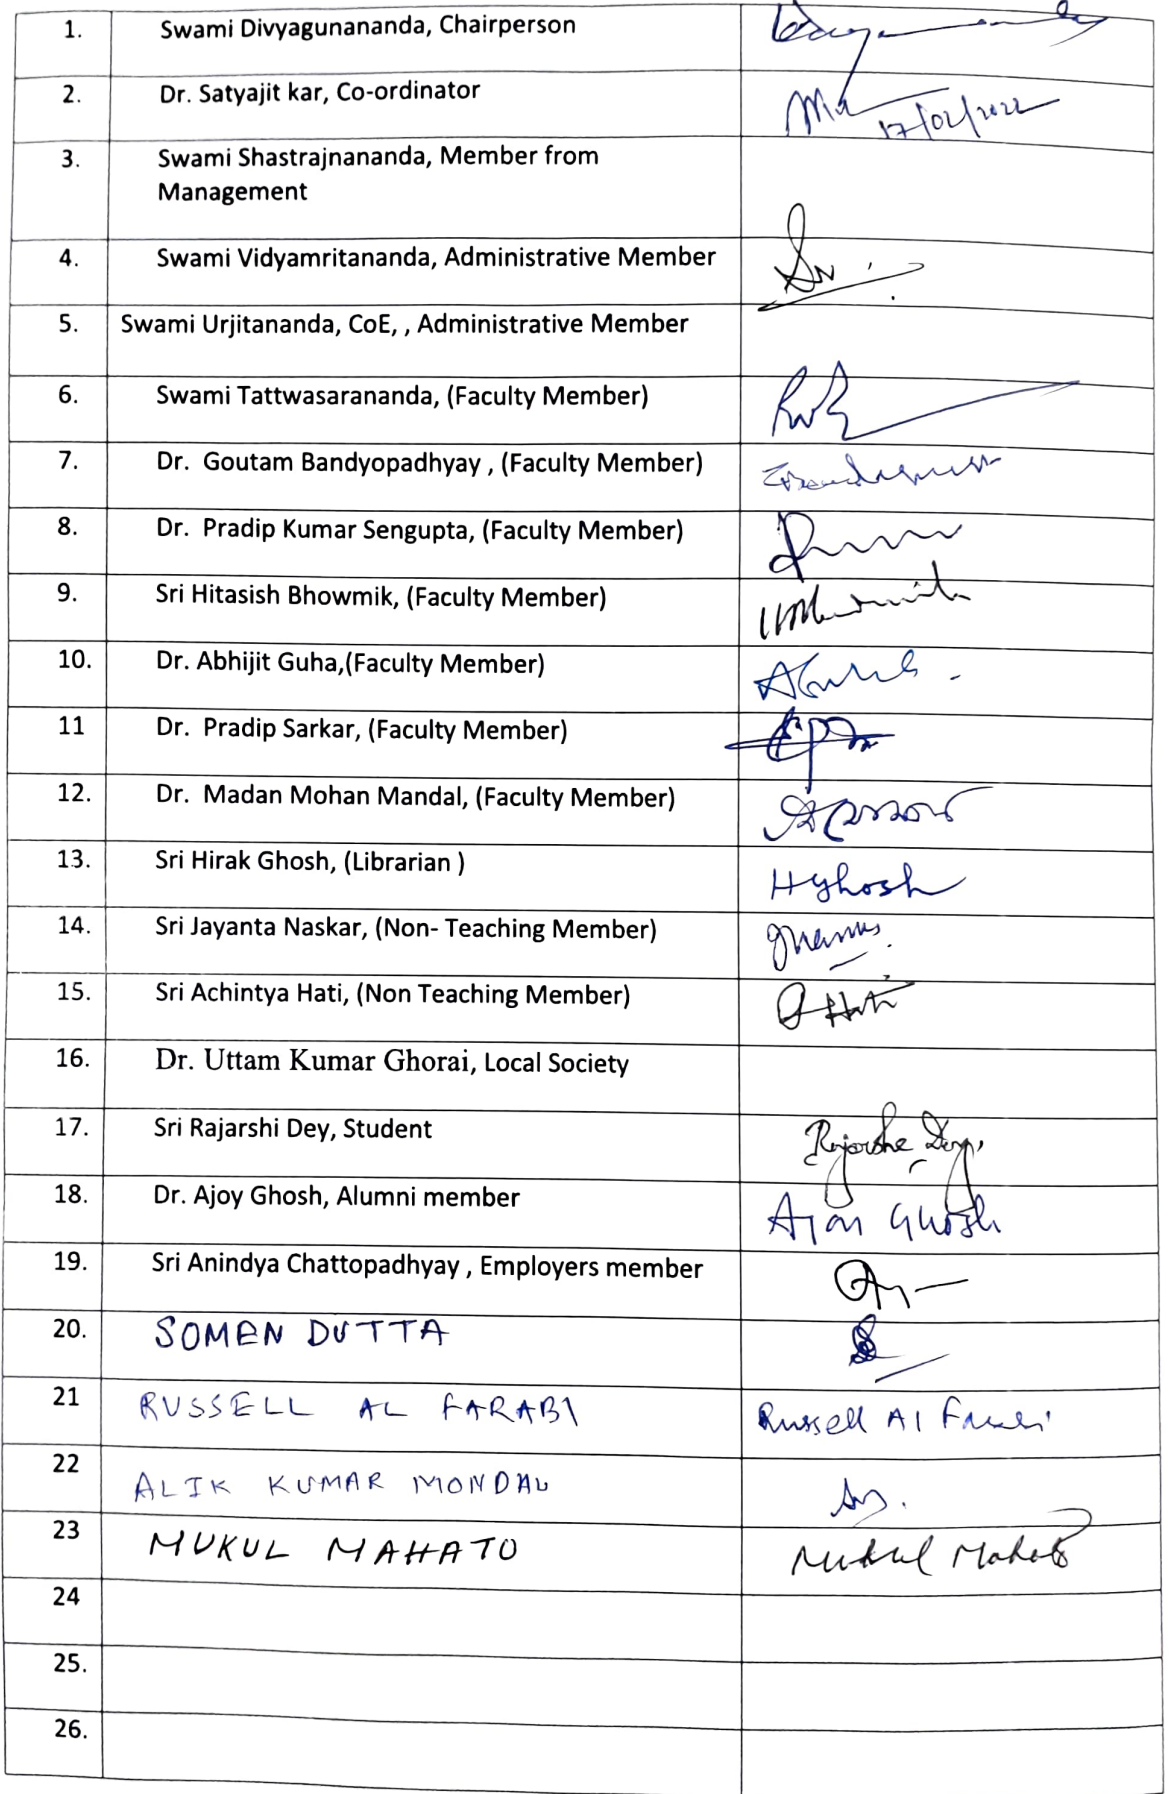 1. Swami Divyagunananda, Chairperson
2. Dr. Satyajit kar, Co-ordinator 17/02/2022
3. Swami Shastrajnananda, Member from
Management
4. Swami Vidyamritananda, Administrative Member
5. Swami Urjitananda, CoE, , Administrative Member
6. Swami Tattwasarananda, (Faculty Member)
7. Dr. Goutam Bandyopadhyay , (Faculty Member)
8. Dr. Pradip Kumar Sengupta, (Faculty Member)
9. Sri Hitasish Bhowmik, (Faculty Member)
10. Dr. Abhijit Guha,(Faculty Member)
11 Dr. Pradip Sarkar, (Faculty Member)
12. Dr. Madan Mohan Mandal, (Faculty Member)
13. Sri Hirak Ghosh, (Librarian ) HGhosh
14. Sri Jayanta Naskar, (Non- Teaching Member)
15. Sri Achintya Hati, (Non Teaching Member)
16. Dr. Uttam Kumar Ghorai, Local Society
17. Sri Rajarshi Dey, Student Rajarshi Dey
18. Dr. Ajoy Ghosh, Alumni member Ajoy Ghosh
19. Sri Anindya Chattopadhyay , Employers member
20. SOMEN DUTTA
21 RUSSELL AL FARABI Russell Al Farabi
22 ALIK KUMAR MONDAL
23 MUKUL MAHATO Mukul Mahato
24
25.
26.